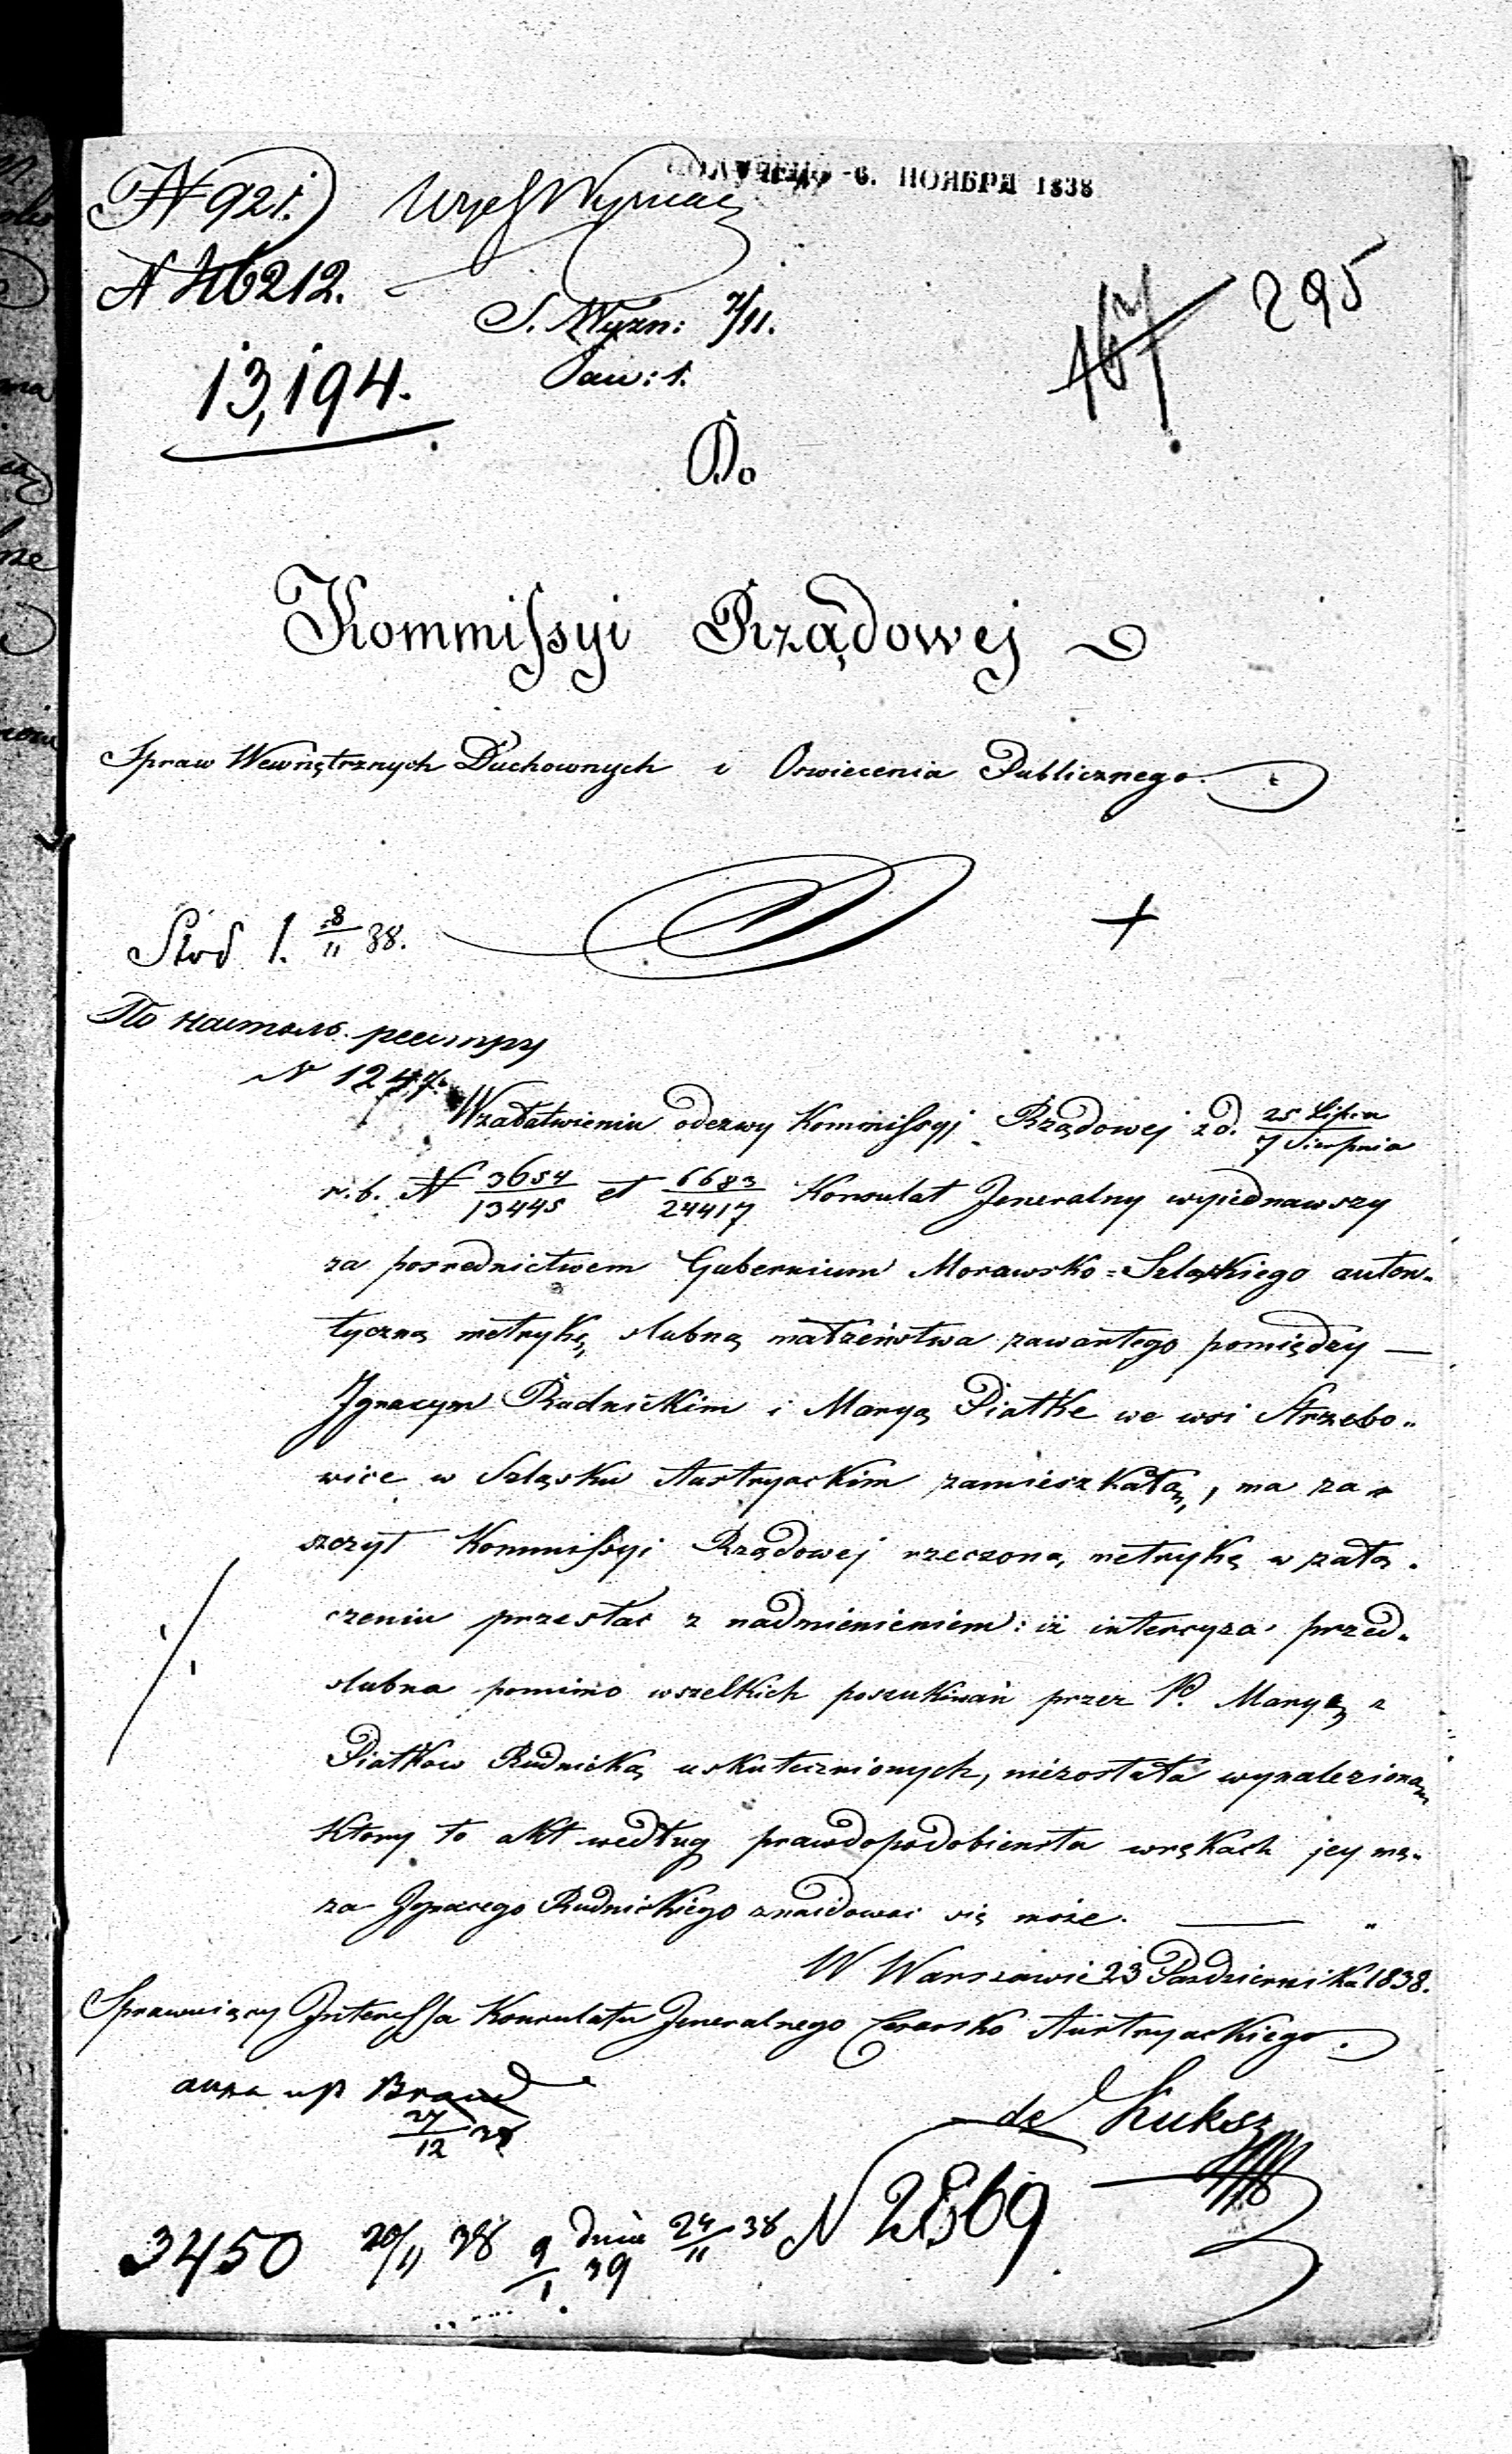 ПОЛУЧЕНО 6. НОЯБРЯ 1838
N 921.
N 46212.
S. Wyzn: 7/11.
13,194.
167 295
Do
Kommissyi Rządowej
Spraw Wewnętrznych Duchownych i Oswiecenia Publicznego.
8/11 38.
По настоль. реестру
N 1247.
W załatwieniu odezwy Kommissyj Rządowej z d. 25 Lipca / 7 Sierpnia
r. b. N 3654/13445 et 6683/24417 Konsulat Jeneralny wyjednawszy
za posrednictwem Gubernium Morawsko=Szląskiego auten-
tyczną metrykę slubną małżeństwa zawartego pomiędzy —
Ignacym Rudnickim i Maryą Piatke we wsi Strzebo-
wice w Szląsku Austryackim zamieszkałą, ma za-
szczyt Kommissyi Rządowej rzeczoną metrykę w załą-
czeniu przesłac z nadmienieniem: iż intercyza przed-
slubna pomimo wszelkich poszukiwań przez P. Maryą z
Piatków Rudnicką uskutecznionych, niezostała wynalezioną
ktory to akt według prawdopodobieństa w rękach jey mę-
za Ignacego Rudnickiego znaidowac się może. —
W Warszawie 23 Pazdziernika 1838.
Sprawuiący Interessa Konsulatu Jeneralnego Cesarsko Austryackiego.
de Luksz
27/12 38
3450 20/11 38 9/1 39 dnia 24/11 38 N 2569